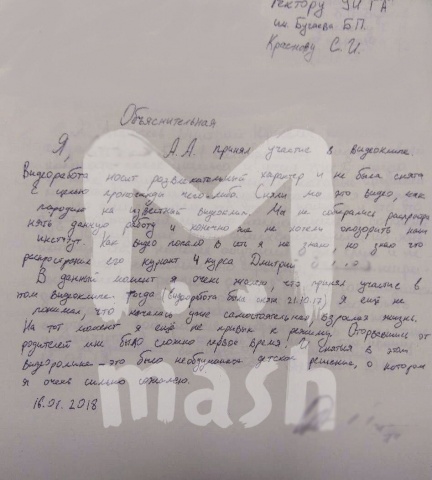 Ректору УИ ГА
им. Бугаева Б.П.
Краснову С.И.
Объяснительная
Я, А.А. принял участие в видеоклипе.
Видеоработа носит развлекательный характер и не была снята
с целью пропаганды чего-либо. Сняли мы это видео, как
пародию на известный видеоклип. Мы не собирались распростра-
нять данную работу и конечно же не хотели опозорить наш
институт. Как видео попало в сеть я не знаю, но знаю что
распространил его курсант 4 курса Дмитрий
В данный момент я очень жалею, что принял участие в
этом видеоклипе. Тогда (видеоработа была снята 21.10.17) я ещё не
понимал, что началась уже самостоятельная, взрослая жизнь.
На тот момент я ещё не привык к режиму. Оторвавшись от
родителей мне было сложно первое время! И снятия в этом
видеоролике - это было необдуманное детское решение, о котором
я очень сильно сожалею.
18.01.2018
mash